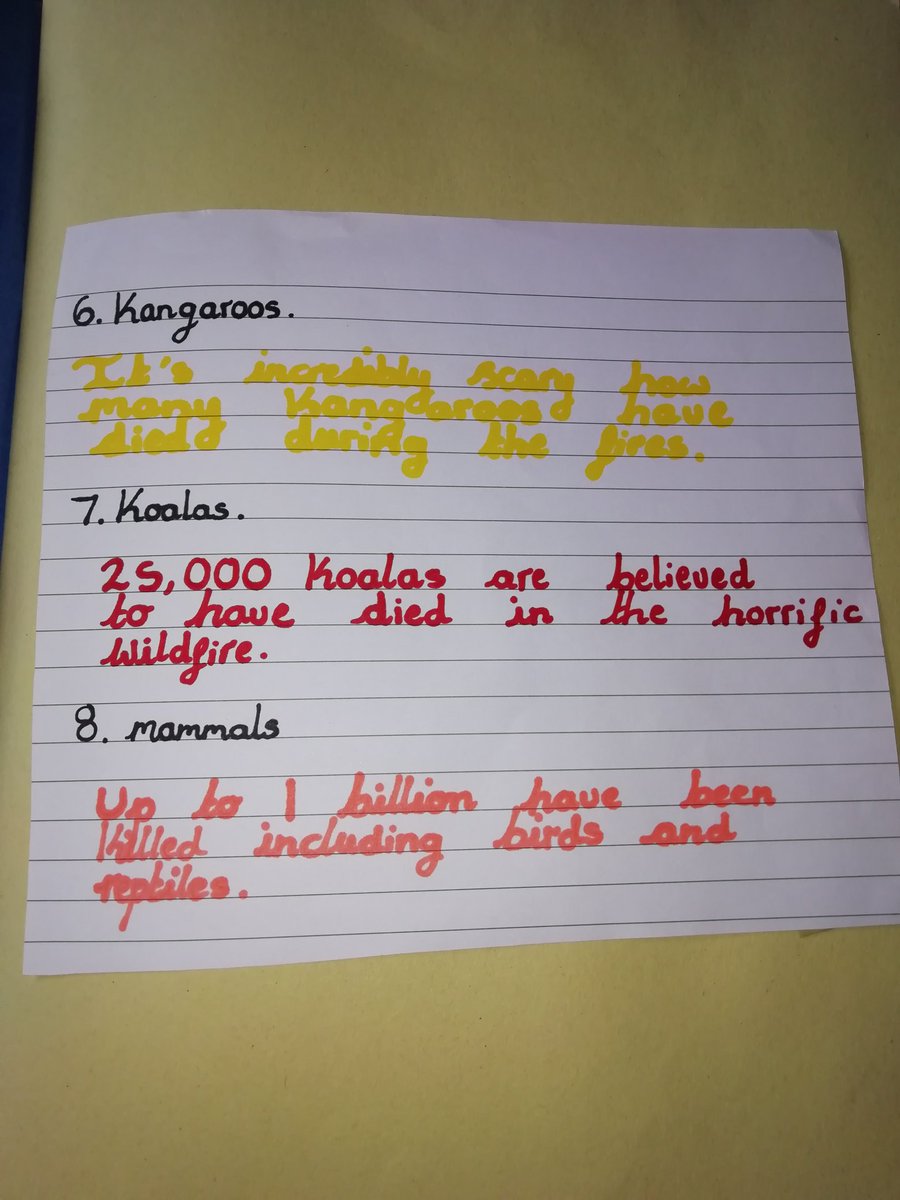 6. Kangaroos.
It's incredibly scary how
many Kangaroos have
died during the fires.
7. Koalas.
25,000 Koalas are believed
to have died in the horrific
wildfire.
8. mammals
Up to 1 billion have been
killed including birds and
reptiles.